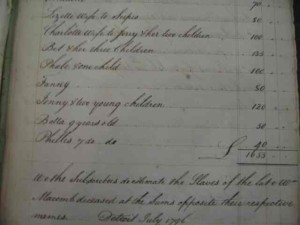 70 "-
Lizette Wife to Scipio 80 "-
Charlotte Wife to Jerry & her two children 100 "-
Bet & her three Children 135 "-
Phebe & one child 100 "-
Fanny 80 "-
Jenny & two young children 120 "-
Betts 9 years old 50 "-
Phillis 7 do. do 40 "-
£ 1655 "-
We the Subscribers estimate the Slaves of the late Wm
Macomb deceased at the Sums opposite their respective
names. Detroit July 1796